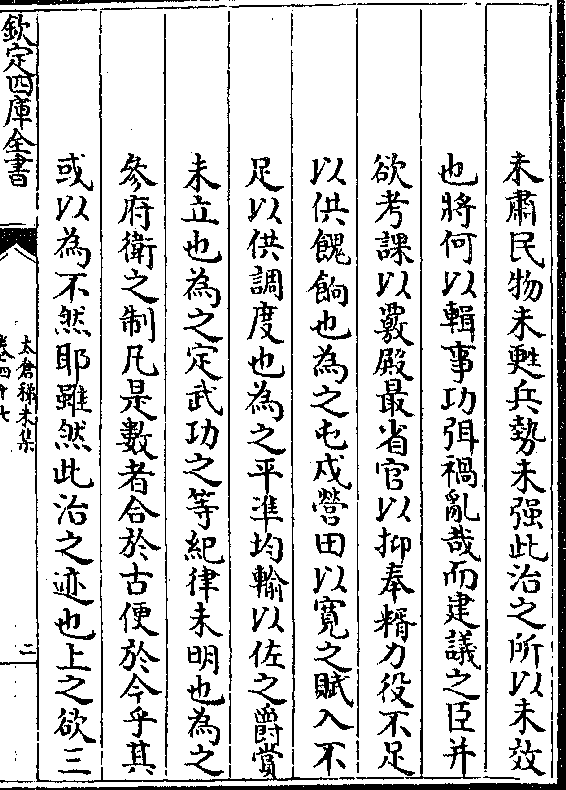 未肅民物未甦兵勢未强此治之所以未效
也將何以輯事功弭禍亂哉而建議之臣并
欲考課以覈殿最省官以抑奉稍力役不足
以供餽餉也為之屯戍營田以寛之賦入不
足以供調度也為之平準均輸以佐之爵賞
未立也為之定武功之等紀律未明也為之
參府衛之制凡是數者合於古便於今乎其
或以為不然耶雖然此治之迹也上之欲三
欽定四庫全書
太倉稊米集
卷四十七
二